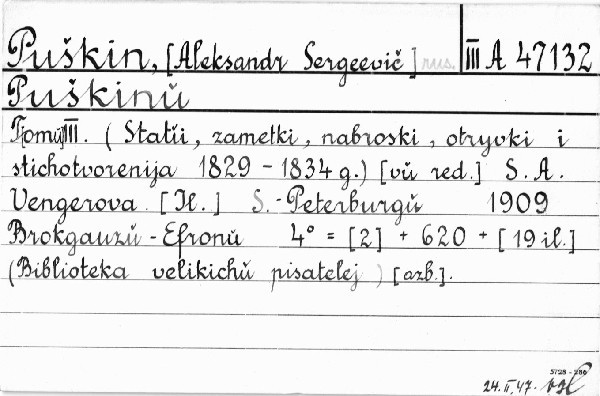 Puškin, [Aleksandr Sergeevič] rus. III A 47132
Puškinŭ
Tomŭ III. (Statii, zametki, nabroski, otryvki i
stichotvorenija 1829 - 1834 g.) [vŭ red.] S. A.
Vengerova. [Il.] S.-Peterburgŭ 1909
Brokgauzŭ - Efronŭ 4° = [2] + 620 + [19 il.]
(Biblioteka velikichŭ pisatelej) [azb.].
5728 - 286
24. II. 47.